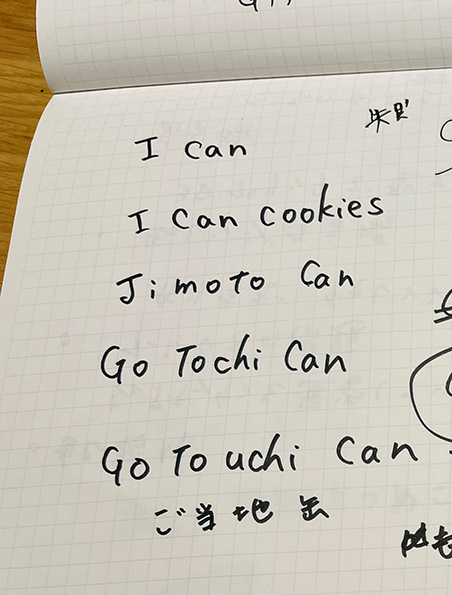 I can
I can cookies
Jimoto Can
Go Tochi Can
Go To uchi Can
ご当地 缶